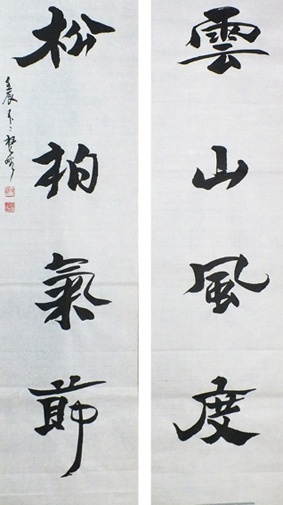 雲山風度
松柏氣節
壬辰